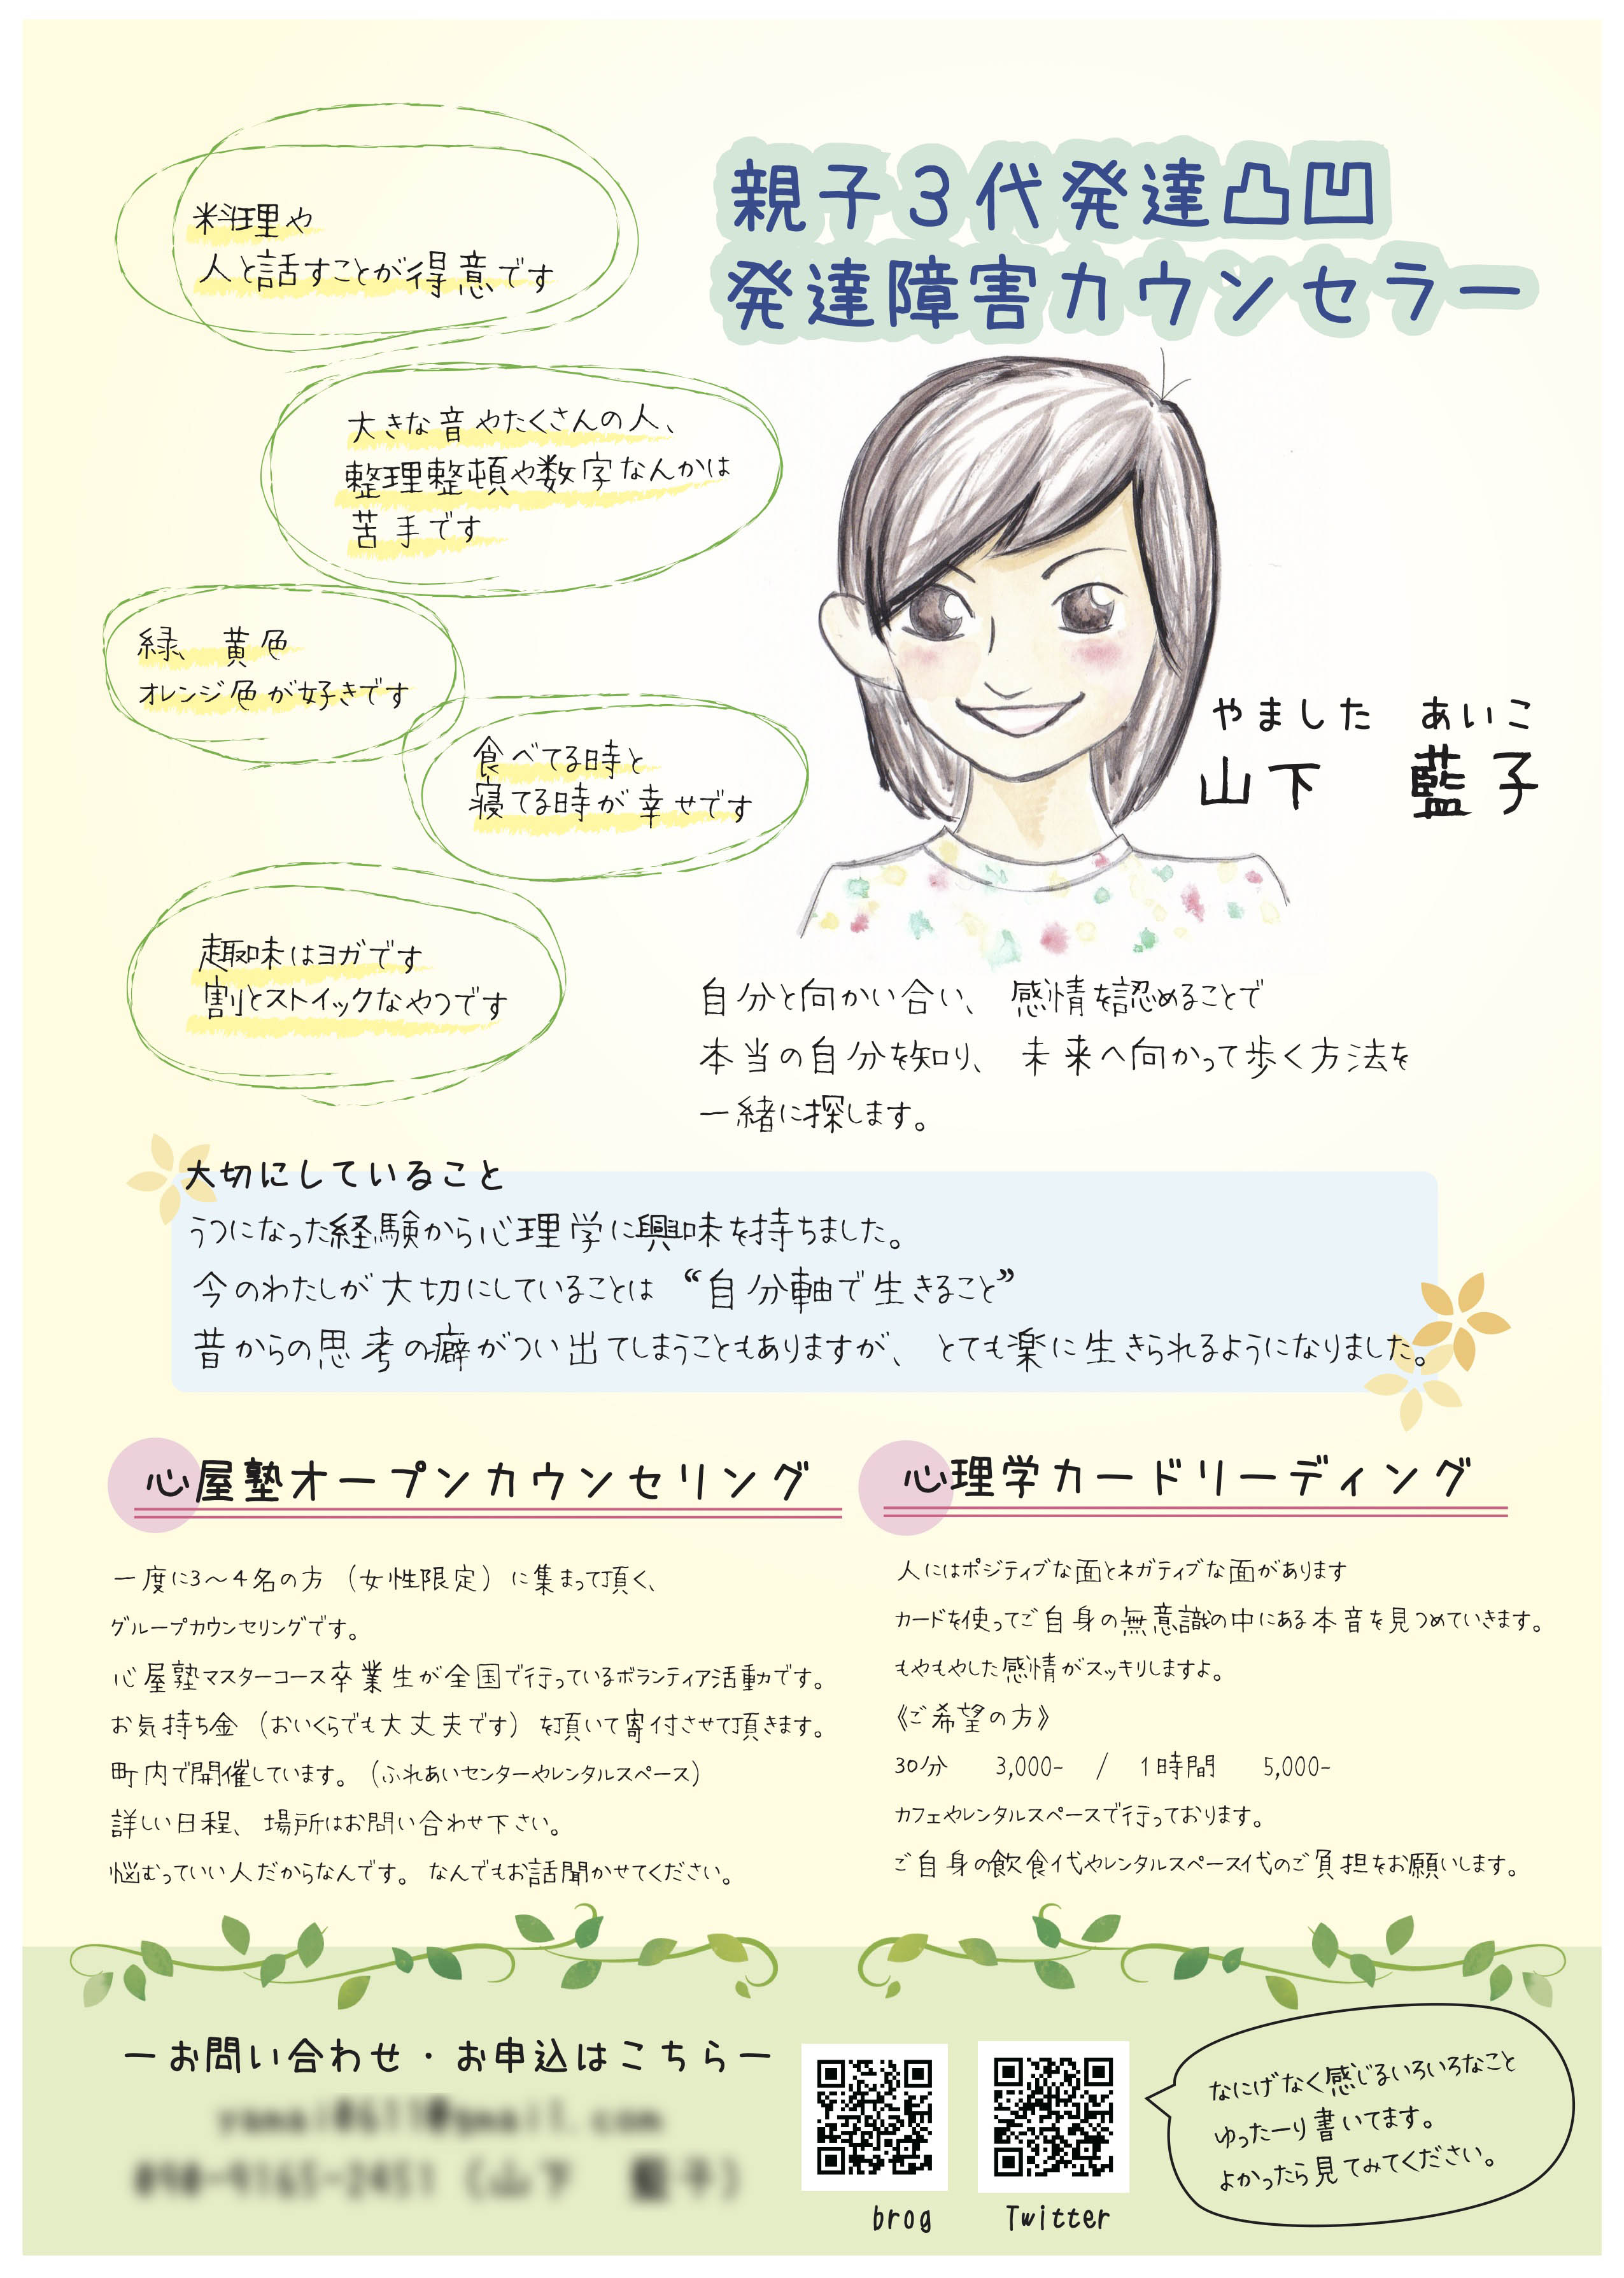 親子3代発達凸凹
発達障害カウンセラー
料理や
人と話すことが得意です
大きな音やたくさんの人、
整理整頓や数字なんかは
苦手です
緑、黄色
オレンジ色が好きです
食べてる時と
寝てる時が幸せです
趣味はヨガです
割とストイックなやつです
やました あいこ
山下 藍子
自分と向かい合い、感情を認めることで
本当の自分を知り、未来へ向かって歩く方法を
一緒に探します。
大切にしていること
うつになった経験から心理学に興味を持ちました。
今のわたしが大切にしていることは “自分軸で生きること”
昔からの思考の癖がつい出てしまうこともありますが、とても楽に生きられるようになりました。
心屋塾オープンカウンセリング
一度に3～4名の方（女性限定）に集まって頂く、
グループカウンセリングです。
心屋塾マスターコース卒業生が全国で行っているボランティア活動です。
お気持ち金（おいくらでも大丈夫です）を頂いて寄付させて頂きます。
町内で開催しています。（ふれあいセンターやレンタルスペース）
詳しい日程、場所はお問い合わせ下さい。
悩むっていい人だからなんです。なんでもお話聞かせてください。
心理学カードリーディング
人にはポジティブな面とネガティブな面があります
カードを使ってご自身の無意識の中にある本音を見つめていきます。
もやもやした感情がスッキリしますよ。
《ご希望の方》
30分 3,000- / 1時間 5,000-
カフェやレンタルスペースで行っております。
ご自身の飲食代やレンタルスペース代のご負担をお願いします。
ーお問い合わせ・お申込はこちらー
brog
Twitter
なにげなく感じるいろいろなこと
ゆったーり書いてます。
よかったら見てみてください。